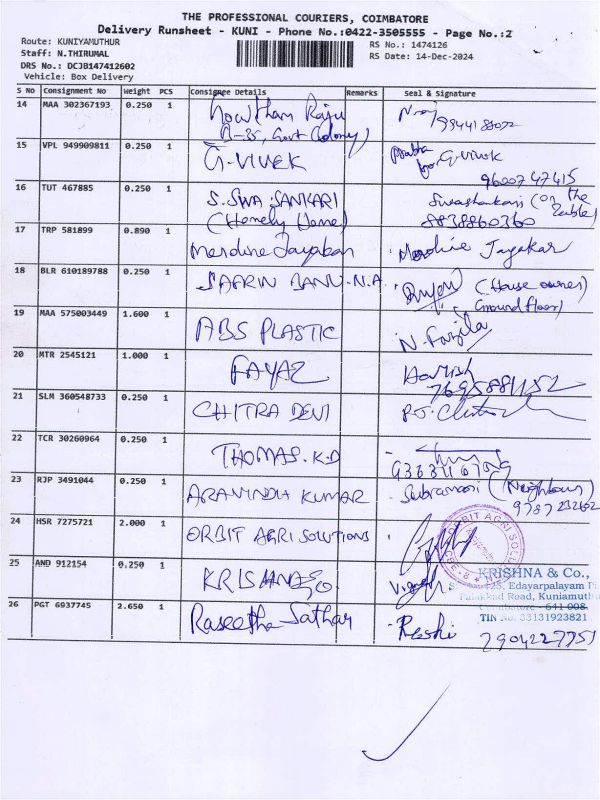 THE PROFESSIONAL COURIERS, COIMBATORE
Delivery Runsheet - KUNI - Phone No.:0422-3505555 - Page No.:2
Route: KUNIYAMUTHUR
RS No.: 1474126
Staff: N.THIRUMAL
RS Date: 14-Dec-2024
DRS No.: DCJB147412602
Vehicle: Box Delivery
S No Consignment No Weight PCS Consignee Details Remarks Seal & Signature
14 MAA 302367193 0.250 1 Gowtham Raju
15 VPL 949909811 0.250 1 G-VIVEK G-Vivek
9600747415
16 TUT 467885 0.250 1 S. SWA SANKARI
(Homely Home) 8838860360
17 TRP 581899 0.890 1 Jayakar
18 BLR 610189788 0.250 1 SAFRIN BANU - N.A (House owner)
Ground floor)
19 MAA 575003449 1.600 1 ABS PLASTIC N. Fazila
20 MTR 2545121 1.000 1 FAYAZ
7695881152
21 SLM 360548733 0.250 1 CHITRA DEVI
22 TCR 30260964 0.250 1 THOMAS. K.D
23 RJP 3491044 0.250 1 ARAVINDH KUMAR Subramani (Neighbour)
24 HSR 7275721 2.000 1 ORBIT AGRI SOLUTIONS
ORBIT AGRI SOLU
25 AND 912154 0.250 1 KRISHNA
KRISHNA & Co.,
Edayarpalayam
Palakkad Road, Kuniamuthu
Coimbatore - 641 008.
TIN No. 33131923821
26 PGT 6937745 2.650 1 Raseetha Sathar Reshi 7904227751